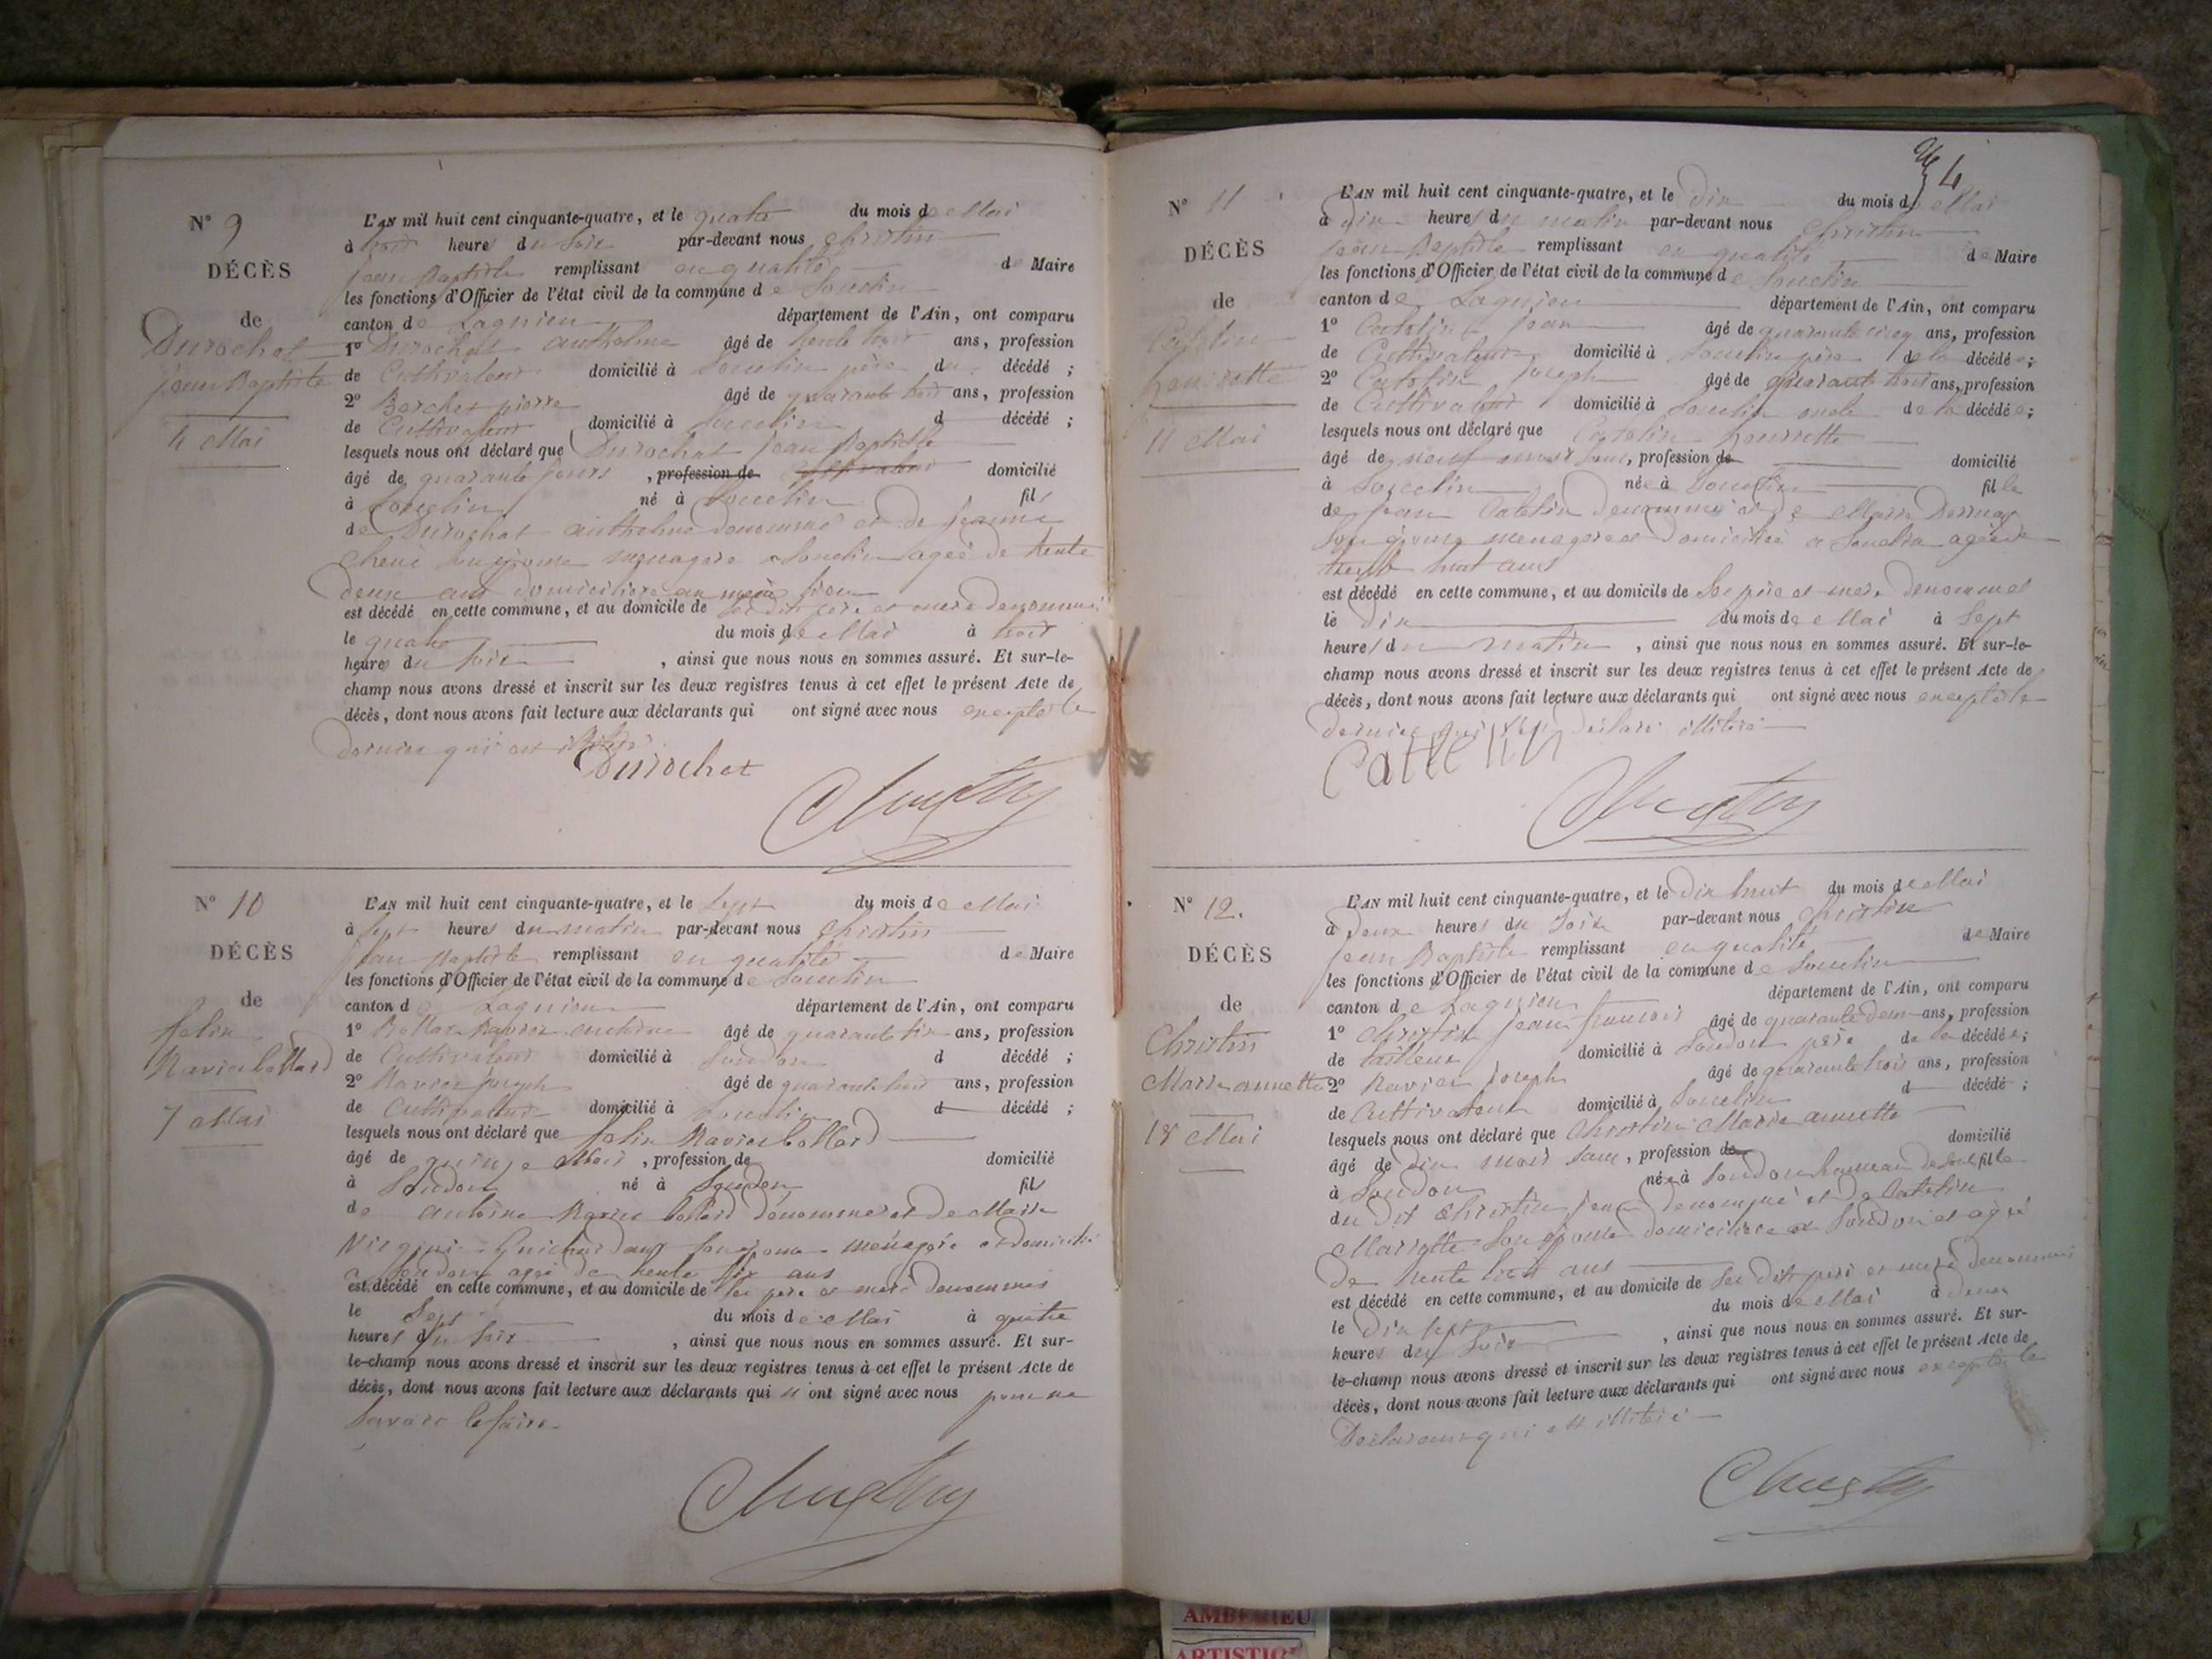 N° 9
DÉCÈS
de
Durochat
jean Baptiste
4 Mai
L'AN mil huit cent cinquante-quatre, et le quatre du mois de Mai
à trois heures du soir par-devant nous Christin
jean Baptiste remplissant en qualité de Maire
les fonctions d'Officier de l'état civil de la commune de Souclin
canton de Lagnieu département de l'Ain, ont comparu
1° Durochat anthelme âgé de trente trois ans, profession
de Cultivateur domicilié à Souclin père du décédé ;
2° Borchet pierre âgé de quarante trois ans, profession
de Cultivateur domicilié à Souclin d décédé ;
lesquels nous ont déclaré que Durochat jean Baptiste
âgé de quarante jours , profession de cultivateur domicilié
à Souclin né à Souclin fils
de Durochat anthelme denommé et de jeanne
son épouse menagere a Souclin agée de trente
deux ans domiciliere au meme lieu
est décédé en cette commune, et au domicile de ses dit père et mere denommés
le quatre du mois de Mai à trois
heures du soir , ainsi que nous nous en sommes assuré. Et sur-le-
champ nous avons dressé et inscrit sur les deux registres tenus à cet effet le présent Acte de
décès, dont nous avons fait lecture aux déclarants qui ont signé avec nous excepté le
dernier qui est
Durochat
Christin
N° 10
DÉCÈS
de
felix
Ravier bollard
7 Mai
L'AN mil huit cent cinquante-quatre, et le sept du mois de Mai
à sept heures du matin par-devant nous Christin
jean Baptiste remplissant en qualité de Maire
les fonctions d'Officier de l'état civil de la commune de Souclin
canton de Lagnieu département de l'Ain, ont comparu
1° Bollard Ravier antoine âgé de quarante six ans, profession
de Cultivateur domicilié à Soudon d décédé ;
2° Ravier joseph âgé de quarante trois ans, profession
de Cultivateur domicilié à Souclin d décédé ;
lesquels nous ont déclaré que felix Ravier bollard
âgé de quinze Mois , profession de domicilié
à Soudon né à Soudon fils
de antoine Ravier bollard dénommé et de Marie
son épouse menagère et domicilié
a Soudon agée de trente six ans
est décédé en cette commune, et au domicile de ses père et mere denommés
le Sept du mois de Mai à quatre
heures du soir , ainsi que nous nous en sommes assuré. Et sur-
le-champ nous avons dressé et inscrit sur les deux registres tenus à cet effet le présent Acte de
décès, dont nous avons fait lecture aux déclarants qui n'ont signé avec nous pour ne
Savoir le faire
Christin
4
N° 11
DÉCÈS
de
Catelin
henriette
11 Mai
L'AN mil huit cent cinquante-quatre, et le dix du mois de Mai
à dix heures du matin par-devant nous Christin
jean Baptiste remplissant en qualité de Maire
les fonctions d'Officier de l'état civil de la commune de Souclin
canton de Lagnieu département de l'Ain, ont comparu
1° Catelin jean âgé de quarante cinq ans, profession
de Cultivateur domicilié à Souclin père de la décédée ;
2° Catelin joseph âgé de quarante trois ans, profession
de Cultivateur domicilié à Souclin oncle de la décédée ;
lesquels nous ont déclaré que Catelin henriette
âgé de neuf mois sans, profession de domicilié
à Souclin née à Souclin fille
de jean Catelin denommé et de Marie
son épouse menagere et domiciliée a Souclin agée de
trente huit ans
est décédé en cette commune, et au domicile de ses père et mere denommes
le dix du mois de Mai à Sept
heures du matin , ainsi que nous nous en sommes assuré. Et sur-le-
champ nous avons dressé et inscrit sur les deux registres tenus à cet effet le présent Acte de
décès, dont nous avons fait lecture aux déclarants qui ont signé avec nous excepté le
dernier qui declaré illitéré
Cattelin
Christin
N° 12.
DÉCÈS
de
Christin
Marie annette
18 Mai
L'AN mil huit cent cinquante-quatre, et le dix huit du mois de Mai
à deux heures du soir par-devant nous Christin
jean Baptiste remplissant en qualité de Maire
les fonctions d'Officier de l'état civil de la commune de Souclin
canton de Lagnieu département de l'Ain, ont comparu
1° Christin jean francois âgé de quarante deux ans, profession
de tailleur domicilié à Soudon père de la décédée ;
2° Ravier joseph âgé de quarante trois ans, profession
de Cultivateur domicilié à Souclin d décédé ;
lesquels nous ont déclaré que Christin Marie annette
âgé de dix mois sans, profession de domicilié
à Soudon née à Soudon hameau de fille
du dit Christin jean denommé et de Catelin
Mariette son épouse domiciliere a Soudon et agée
de trente trois ans
est décédé en cette commune, et au domicile de ses dit père et mere denommés
le dix sept du mois de Mai à deux
heures du soir , ainsi que nous nous en sommes assuré. Et sur-
le-champ nous avons dressé et inscrit sur les deux registres tenus à cet effet le présent Acte de
décès, dont nous avons fait lecture aux déclarants qui ont signé avec nous excepté le
Declarant qui est illitéré
Christin
AMBERIEU